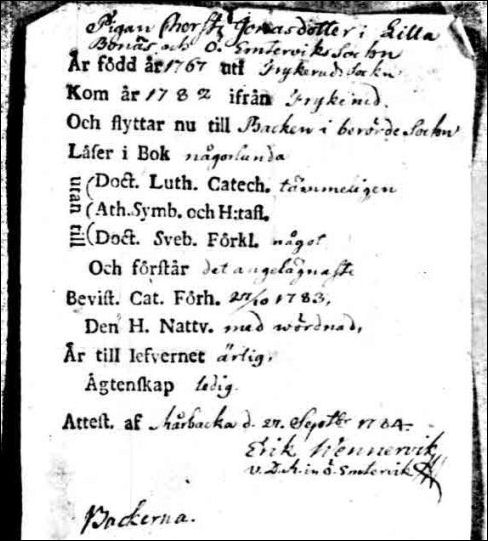 Pigan Cherst: Jonasdotter i Lilla
Bonäs och Ö. Emterviks Sochn
År född år 1767 uti Frykeruds Sockn
Kom år 1782 ifrån Frykerud.
Och flyttar nu till Backen i berörde Sochn
Låser i Bok någorlunda
utan till
(Doct. Luth. Catech. tämmeligen
(Ath. Symb. och H:tafl.
(Doct. Sveb. Förkl. något
Och förstår det angelägnaste
Bevist. Cat. Förh. 27/10 1783.
Den H. Nattv. med wördnad,
Är till lefvernet ärlig,
Ägtenskap ledig
Attest. af Mårbacka d. 27. Septbr 1784.
Erik Wennervik
V.D.M. in Ö. Emtervik
Backerna.